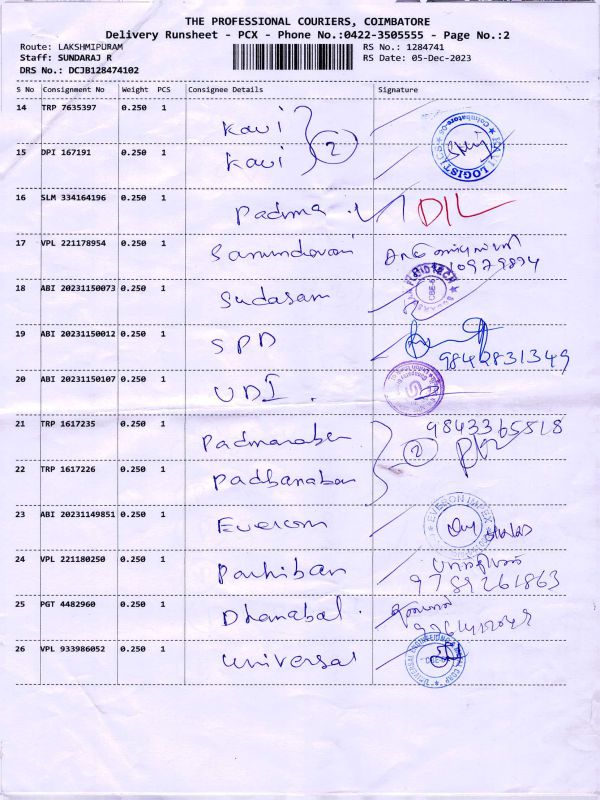 THE PROFESSIONAL COURIERS, COIMBATORE
Delivery Runsheet - PCX - Phone No.:0422-3505555 - Page No.:2
Route: LAKSHMIPURAM RS No.: 1284741
Staff: SUNDARAJ R RS Date: 05-Dec-2023
DRS No.: DCJB128474102
S No Consignment No Weight PCS Consignee Details Signature
14 TRP 7635397 0.250 1 Kavi
2
15 DPI 167191 0.250 1 Kavi LOGISTICS
16 SLM 334164196 0.250 1 Padma DIL
17 VPL 221178954 0.250 1
18 ABI 20231150073 0.250 1 Sudasam
19 ABI 20231150012 0.250 1 SPD
9842831349
20 ABI 20231150107 0.250 1 UDI.
21 TRP 1617235 0.250 1 9843365518
2
22 TRP 1617226 0.250 1 Padbanaban
23 ABI 20231149851 0.250 1 Evercon EVESON IMPEX
24 VPL 221180250 0.250 1 Parhiban
9789261863
25 PGT 4482960 0.250 1 Dhanabal.
26 VPL 933986052 0.250 1 Universal